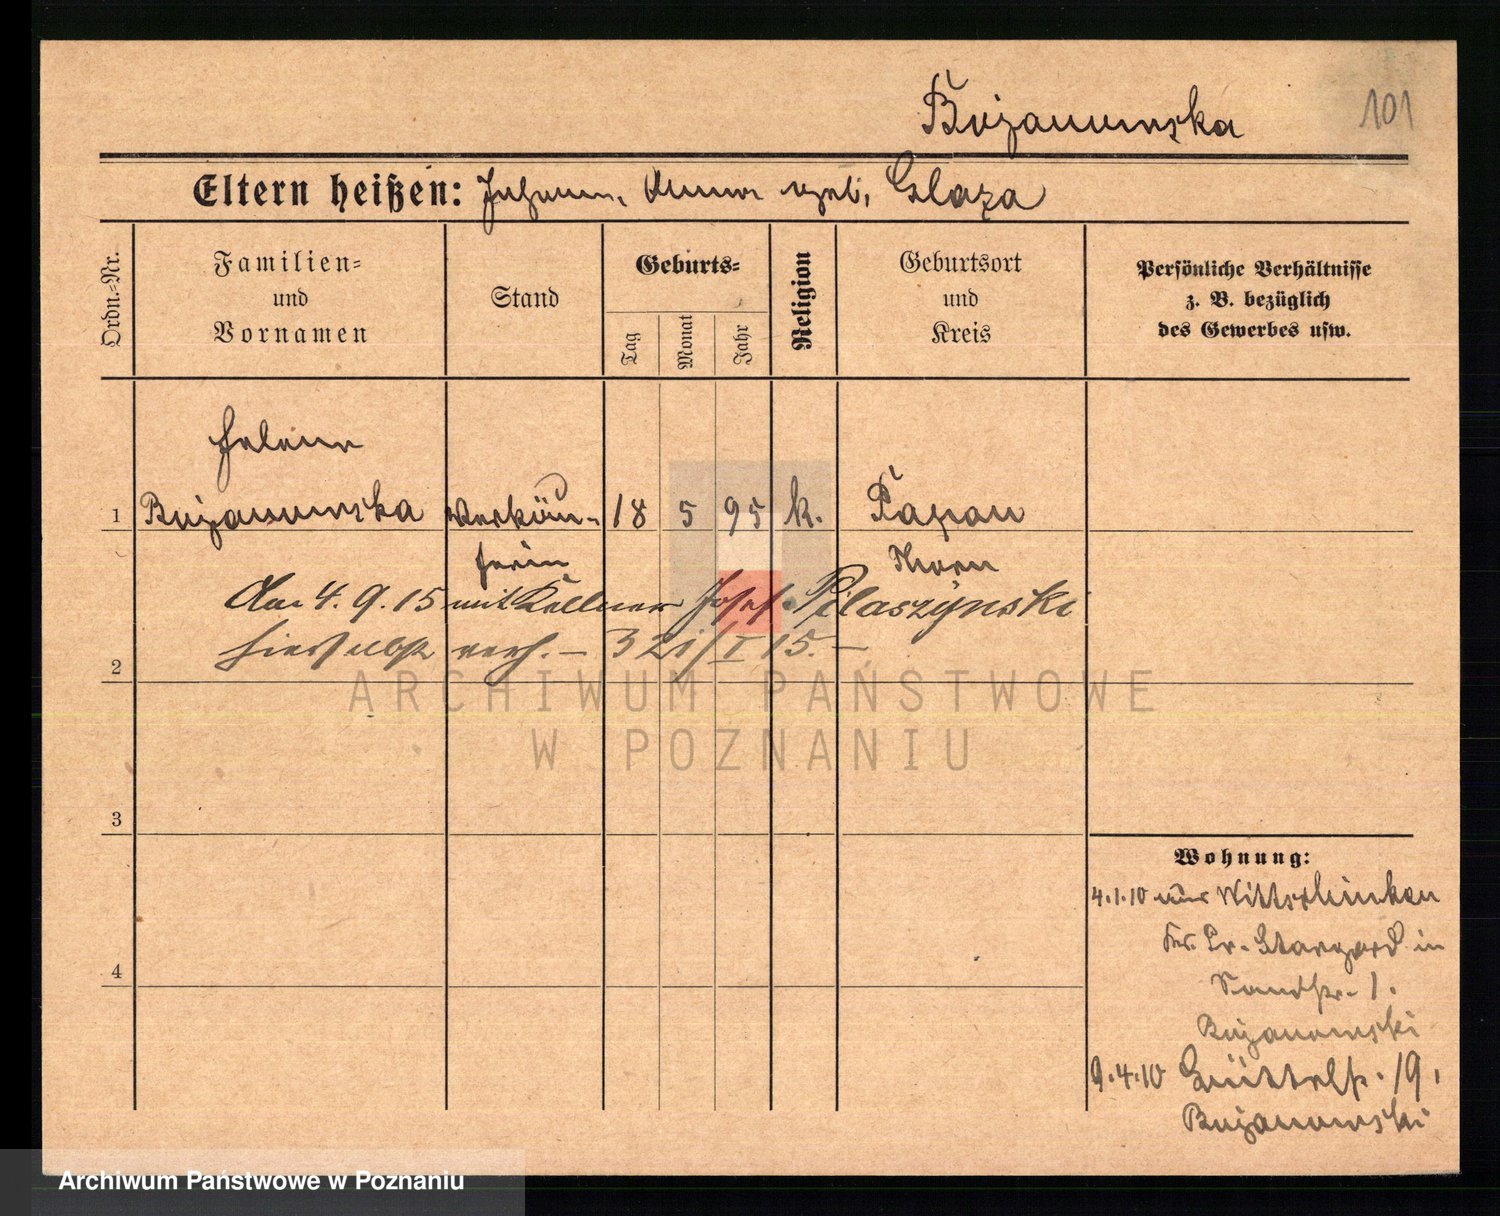 Bojanowska
101
Eltern heißen: Johann, Anna geb. Glaza
Ordn.=Nr.
Familien=
und
Vornamen
Stand
Geburts=
Tag
Monat
Jahr
Religion
Geburtsort
und
Kreis
Persönliche Verhältnisse
z. B. bezüglich
des Gewerbes usw.
Helene
1 Bojanowska Verkäu- 18 5 95 k. Papau
ferin Thorn
Am 4. 9. 15 mit Kellner Josef Pilaszynski
hierselbst verh. – 321/I 15. –
2
3
4
Wohnung:
4.1.10 aus
Kr. Pr. Stargard in
1.
Bojanowski
9.4.10 19.
Bojanowski
ARCHIWUM PAŃSTWOWE
W POZNANIU
Archiwum Państwowe w Poznaniu